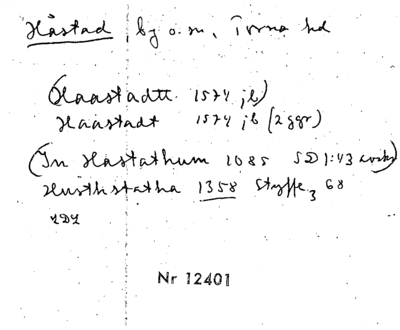 Håstad, by o. sn, Torna hd
(Haastadtt 1574 jb)
Haastadt 1574 jb (2 ggr)
(In Hastathum 1085 SD 1:43 avskr)
Husthstatha 1358 Styffe 3 68
Nr 12401